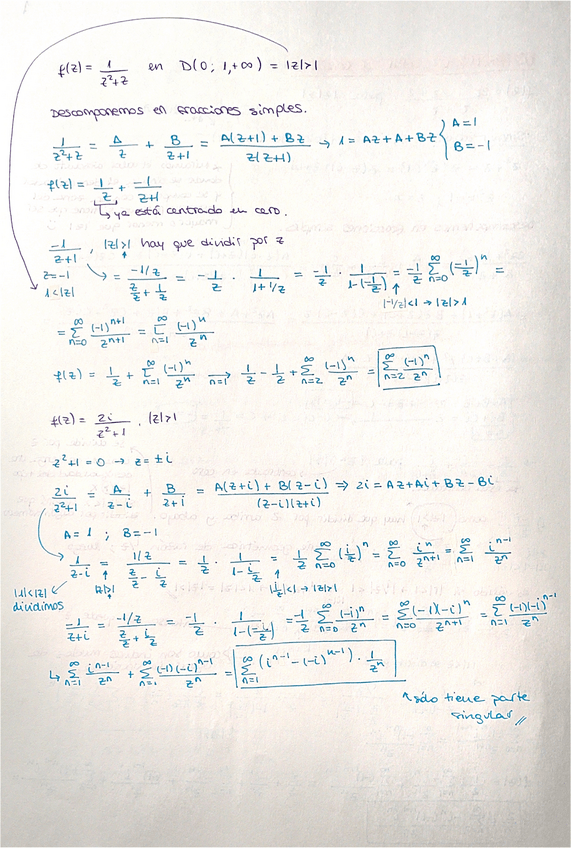 f(z) = 1/(z²+z) en D(0; 1,+∞) = |z|>1
Descomponemos en fracciones simples.
1/(z²+z) = A/z + B/(z+1) = (A(z+1) + Bz)/(z(z+1)) → 1 = Az+A+Bz { A=1 B=-1
f(z) = 1/z + -1/(z+1)
↳ ya está centrado en cero.
-1/(z+1), |z|>1 hay que dividir por z
z=-1 1<|z| → = (-1/z)/(z/z + 1/z) = -1/z · 1/(1+1/z) = -1/z · 1/(1-(-1/z)) = -1/z ∑_{n=0}^{∞} (-1/z)^n =
|-1/z|<1 → |z|>1
= ∑_{n=0}^{∞} (-1)^{n+1}/z^{n+1} = ∑_{n=1}^{∞} (-1)^n/z^n
f(z) = 1/z + ∑_{n=1}^{∞} (-1)^n/z^n →_{n=1} 1/z - 1/z + ∑_{n=2}^{∞} (-1)^n/z^n = ∑_{n=2}^{∞} (-1)^n/z^n
f(z) = 2i/(z²+1), |z|>1
z²+1=0 → z=±i
2i/(z²+1) = A/(z-i) + B/(z+i) = (A(z+i) + B(z-i))/((z-i)(z+i)) ⇒ 2i = Az+Ai+Bz-Bi
A=1 ; B=-1
1/(z-i) = (1/z)/(z/z - i/z) = 1/z · 1/(1-i/z) = 1/z ∑_{n=0}^{∞} (i/z)^n = ∑_{n=0}^{∞} i^n/z^{n+1} = ∑_{n=1}^{∞} i^{n-1}/z^n
|z|>1
|i/z|<1 → |z|>1
|1|<|z| dividimos
-1/(z+i) = (-1/z)/(z/z + i/z) = -1/z · 1/(1-(-i/z)) = -1/z ∑_{n=0}^{∞} (-i)^n/z^n = ∑_{n=0}^{∞} (-1)(-i)^n/z^{n+1} = ∑_{n=1}^{∞} (-1)(-i)^{n-1}/z^n
↳ ∑_{n=1}^{∞} i^{n-1}/z^n + ∑_{n=1}^{∞} (-1)(-i)^{n-1}/z^n = ∑_{n=1}^{∞} (i^{n-1} - (-i)^{n-1}) · 1/z^n
↖ sólo tiene parte
singular //